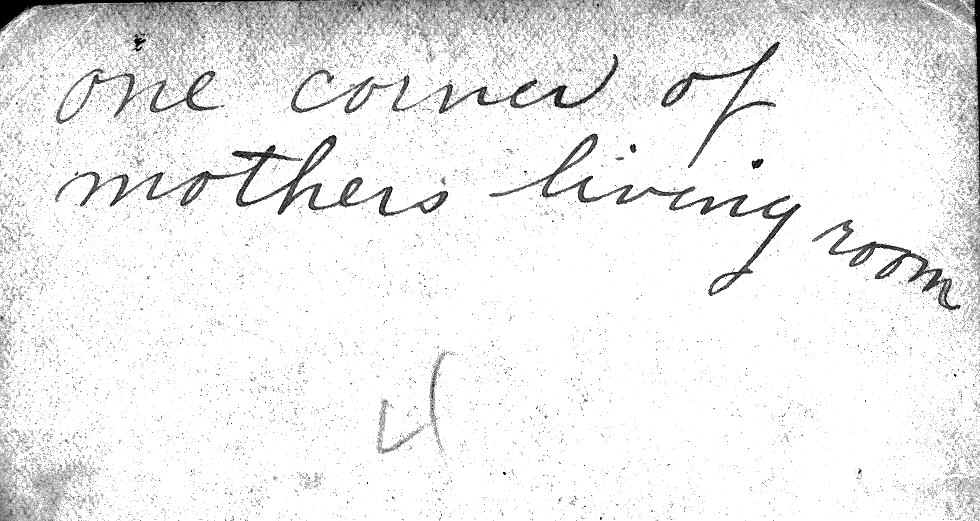 one corner of
mothers living room